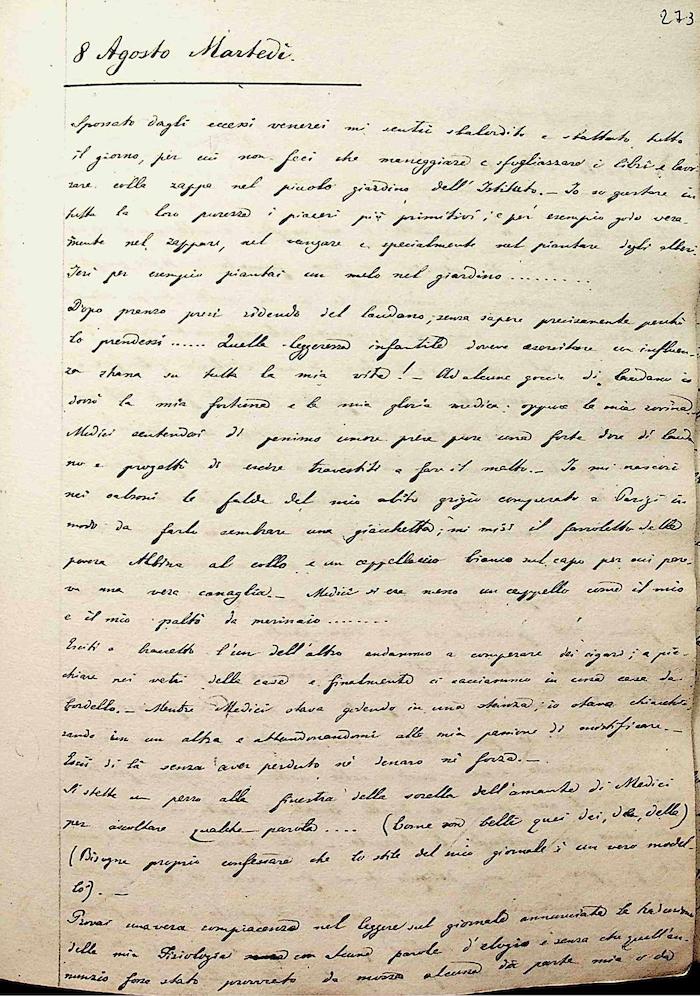 273
8 Agosto Martedì.
Spossato dagli eccessi venerei mi sentii sbalordito e sbattuto tutto
il giorno, per cui non feci che maneggiare e sfogliazzare i libri e lavo-
rare colla zappa nel piccolo giardino dell'Istituto. — Io so gustare in
tutta la loro purezza i piaceri più primitivi; e per esempio godo vera-
mente nel zappare, nel vangare e specialmente nel piantare degli alberi.
Ieri per esempio piantai un melo nel giardino .........
Dopo pranzo presi ridendo del laudano, senza sapere precisamente perchè
lo prendessi ...... Quella leggerezza infantile doveva esercitare un'influen-
za strana su tutta la mia vita! — Ad alcune goccie di laudano io
dovrò la mia fortuna e la mia gloria medica: oppure la mia rovina.
Medici sentendosi di pessimo umore prese pure una forte dose di lauda-
no e progettò di uscire travestiti a fare il matto. — Io mi nascosi
nei calzoni le falde del mio abito grigio comperato a Parigi in
modo da farlo sembrare una giacchetta; mi misi il fazzoletto della
povera Albina al collo e un cappellaccio bianco sul capo per cui pare-
va una vera canaglia. — Medici si era messo un cappello come il mio
e il mio paltò da marinaio ........
Esciti a braccetto l'un dell'altro andammo a comperare dei cigari; a pic-
chiare nei vetri delle case e finalmente ci cacciammo in una casa da
bordello. — Mentre Medici stava godendo in una stanza; io stava chiacchie-
rando in un altra e abbandonandomi alla mia passione di mistificare. —
Escii di là senza aver perduto nè denaro nè forza. —
Si stette un pezzo alla finestra della sorella dell'amante di Medici
per ascoltare qualche parola .... (Come son belli quei dei, della, della)
(Bisogna proprio confessare che lo stile del mio giornale è un vero model-
lo). —
Provai una vera compiacenza nel leggere sul giornale annunciata la traduzione
della mia Fisiologia con alcune parole d'elogio e senza che quell'an-
nunzio fosse stato provocato da mossa alcuna da parte mia o di